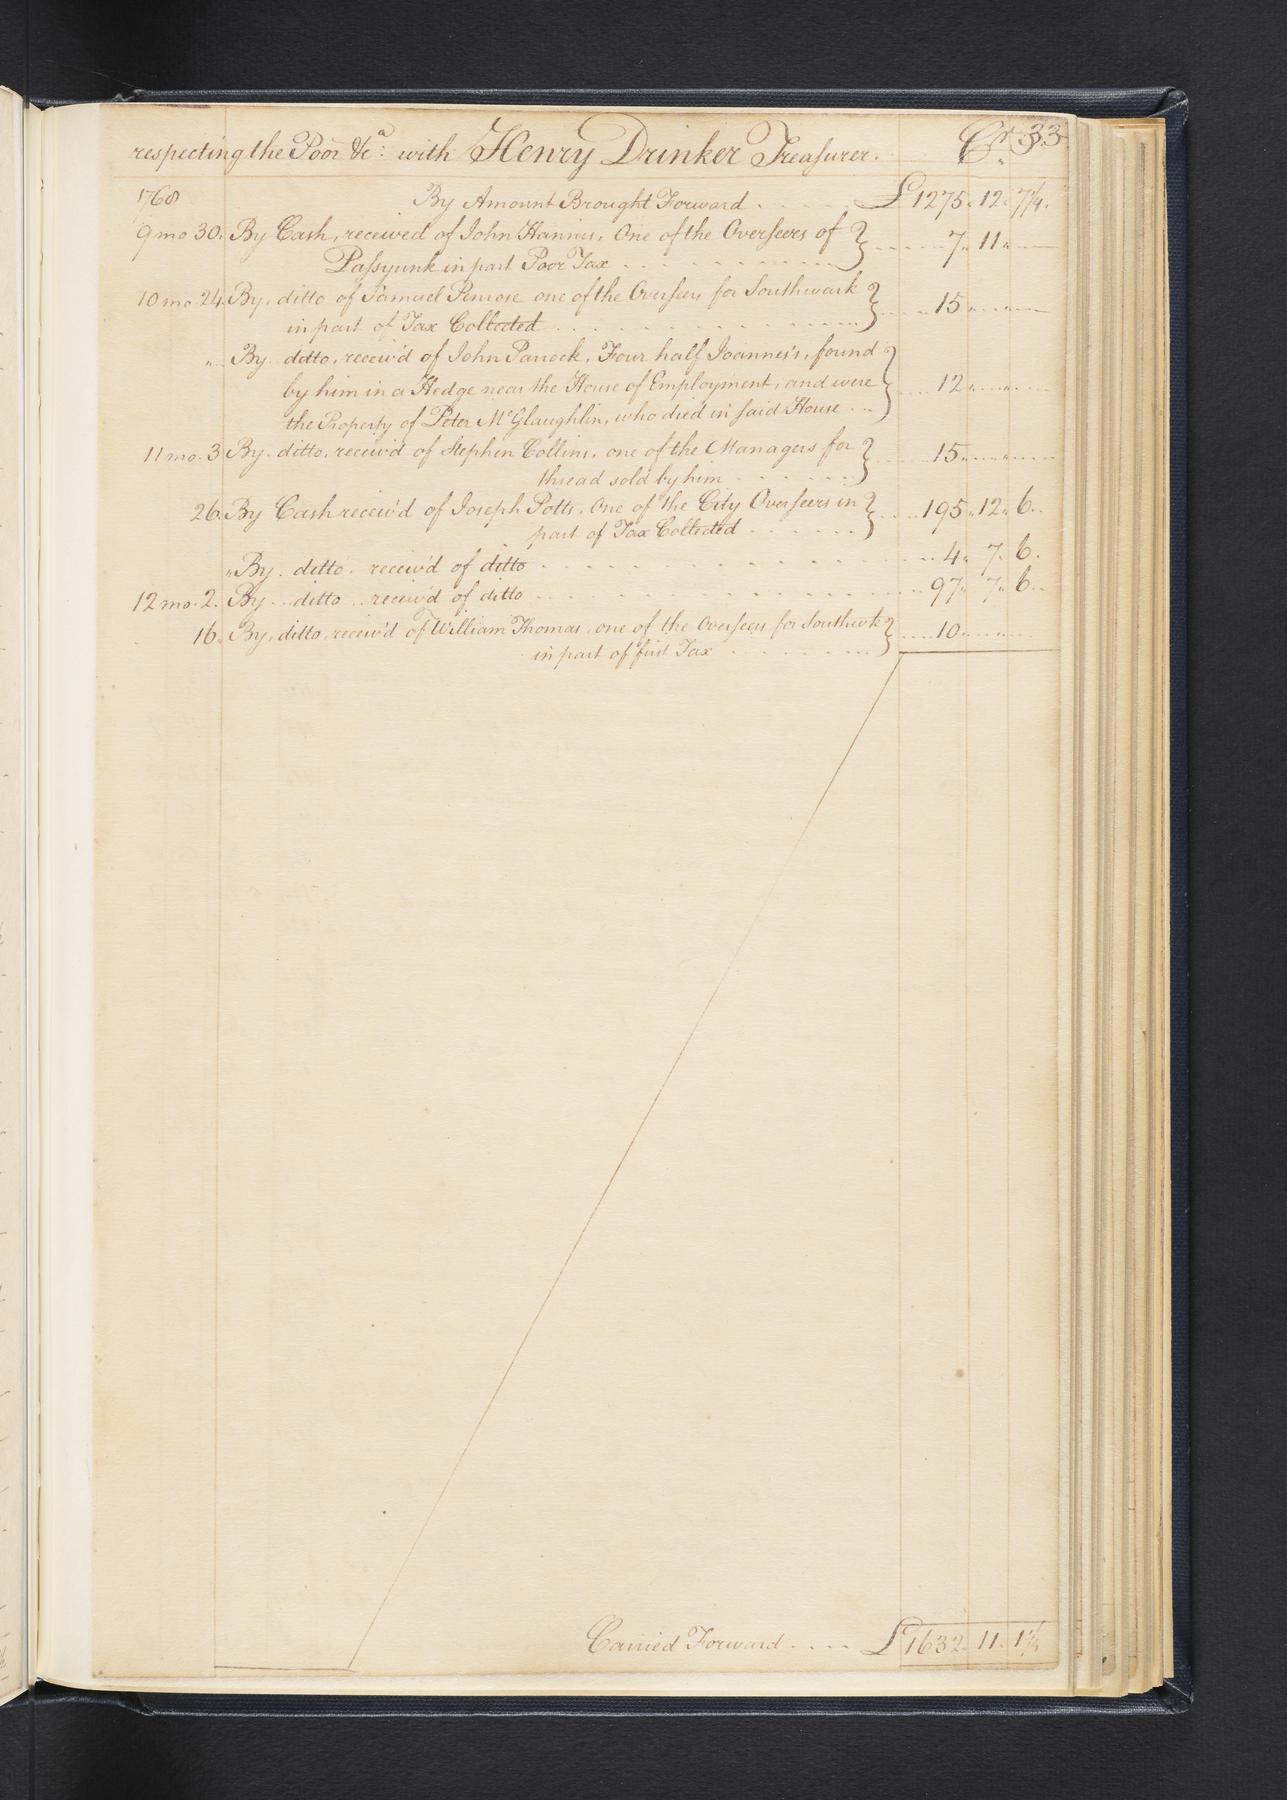 respecting the Poor &cª: with Henry Drinker Treasurer. Cr. 33
1768 By Amount Brought Forward . . . . . £1275. 12. 7¼.
9 mo 30. By Cash, received of John Hannis, One of the Overseers of } 7. 11.
Passyunk in part Poor Tax
10 mo. 24. By. ditto of Samuel Penrose one of the Overseers for Southwark } 15
in part of Tax Collected
" By ditto, receiv'd of John Panock, Four half Joannes's, found
by him in a Hedge near the House of Employment, and were } 12
the Property of Peter McGlaughlin, who died in said House . . .
11 mo. 3 By. ditto, receiv'd of Stephen Collins, one of the Managers for } 15
thread sold by him
26. By Cash receiv'd of Joseph Potts, One of the City Overseers in } 195. 12. 6.
part of Tax Collected
" By. ditto. receiv'd of ditto . . . 4. 7. 6.
12 mo. 2. By. ditto. receiv'd of ditto . . . 97. 7. 6.
16. By, ditto, receiv'd of William Thomas, one of the Overseers for Southwk } 10
in part of first Tax
Carried Forward . . . . £1632. 11. 1¼